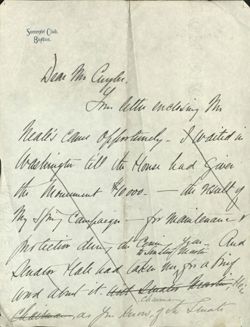 Somerset Club,
Boston.
Dear Mr Cuyler.
Your letter enclosing Mr
Neale's came opportunely - I waited in
Washington till the House had given
the Monument $10000 - the result of
my Spring Campaign - for maintenance &
protection during the coming year. And
Senator Hale had taken me for a
word about it.
Chairman as you know, of the Senate